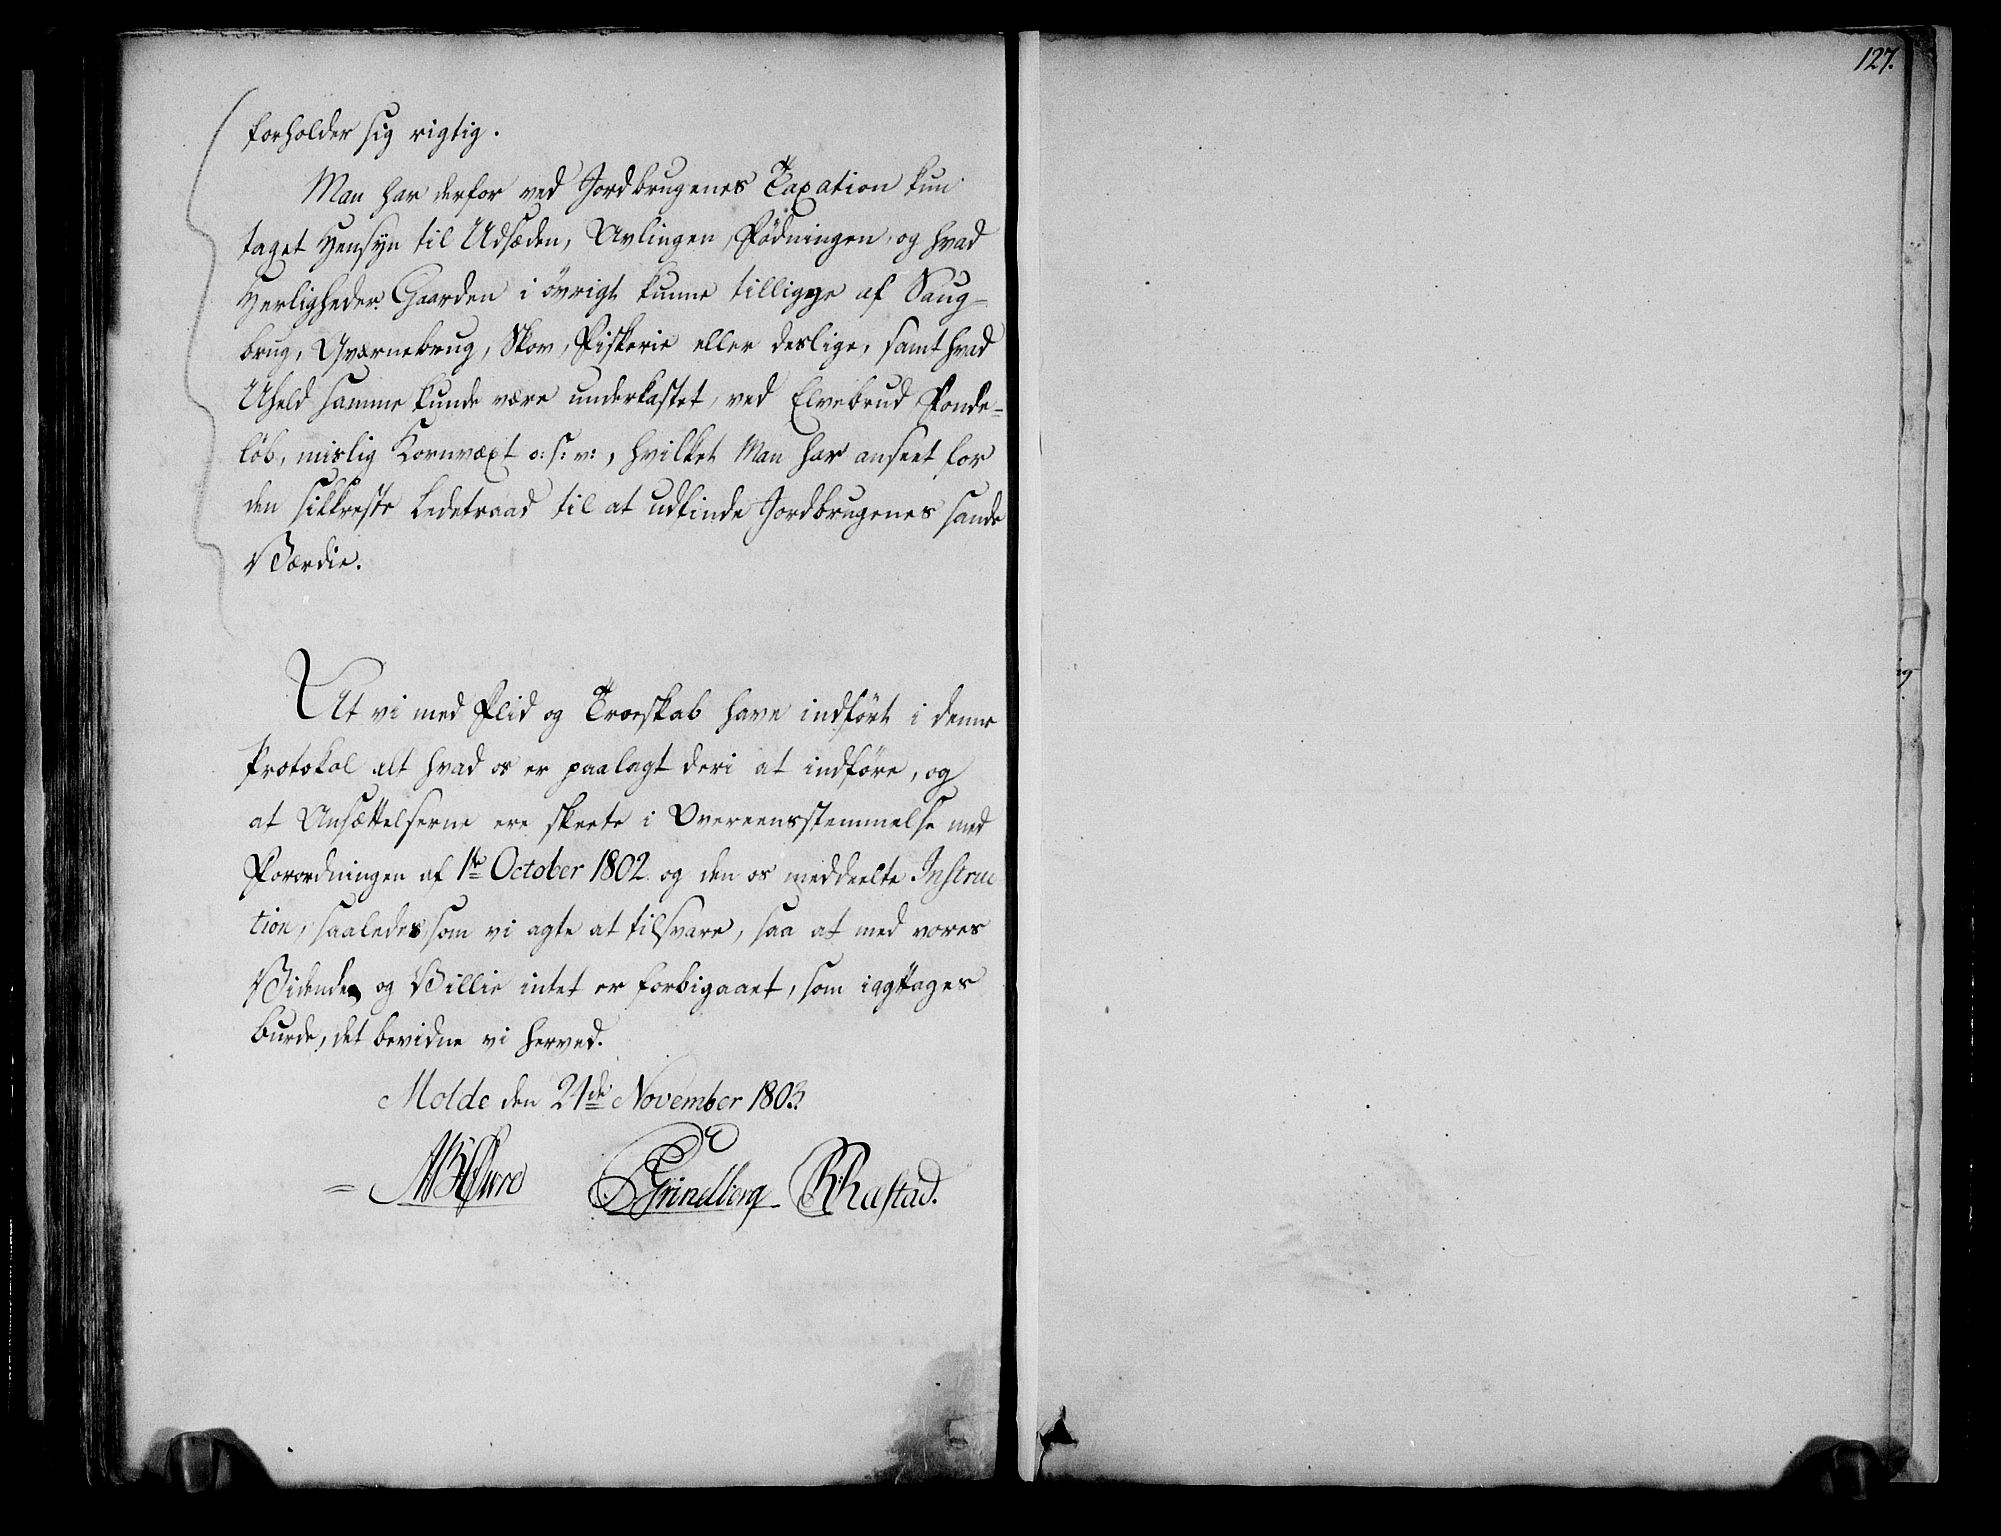 127.
forholder sig rigtig.
Man har derfor ved Jordbrugenes Taxation kun
taget Hensyn til Udsæden, Avlingen, Födningen, og hvad
Herligheder Gaarden i övrigt kunne tilligge af Saug-
brug, Qværnebrug, Skov, Fiskerie eller deslige, samt hvad
Uheld samme kunde være underkastet, ved Elvebrud Fonde-
löb, mislig Kornvæxt o: s: v:, hvilket Man har anseet for
den sikkreste Ledetraad til at udfinde Jordbrugenes sande
Værdie.
At vi med Flid og Troeskab have indfört i denne
Protokol alt hvad os er paalagt deri at indföre, og
at Ansættelserne ere skeete i Overeensstemmelse med
Forordningen af 1te October 1802 og den os meddeelte Instruc
tion, saaledes som vi agte at tilsvare, saa at med vores
Vidende og Villie intet er forbigaaet, som iagttages
burde, det bevidne vi herved.
Molde den 24de November 1803.
Grindberg Rastad.